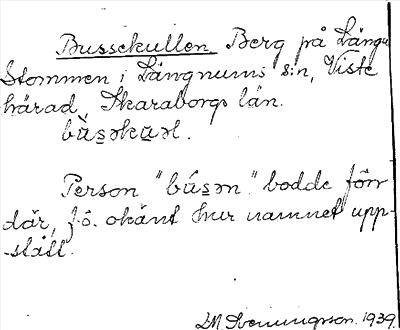 Bussekullen. Berg på Längn
Stommen i Längnums s:n, Viste
härad, Skaraborgs län.
bùs̱əku̱əl.
Person "bús̱ən" bodde förr
där, f.ö. okänt hur namnet upp-
stått.
LM Svenungsson. 1939.